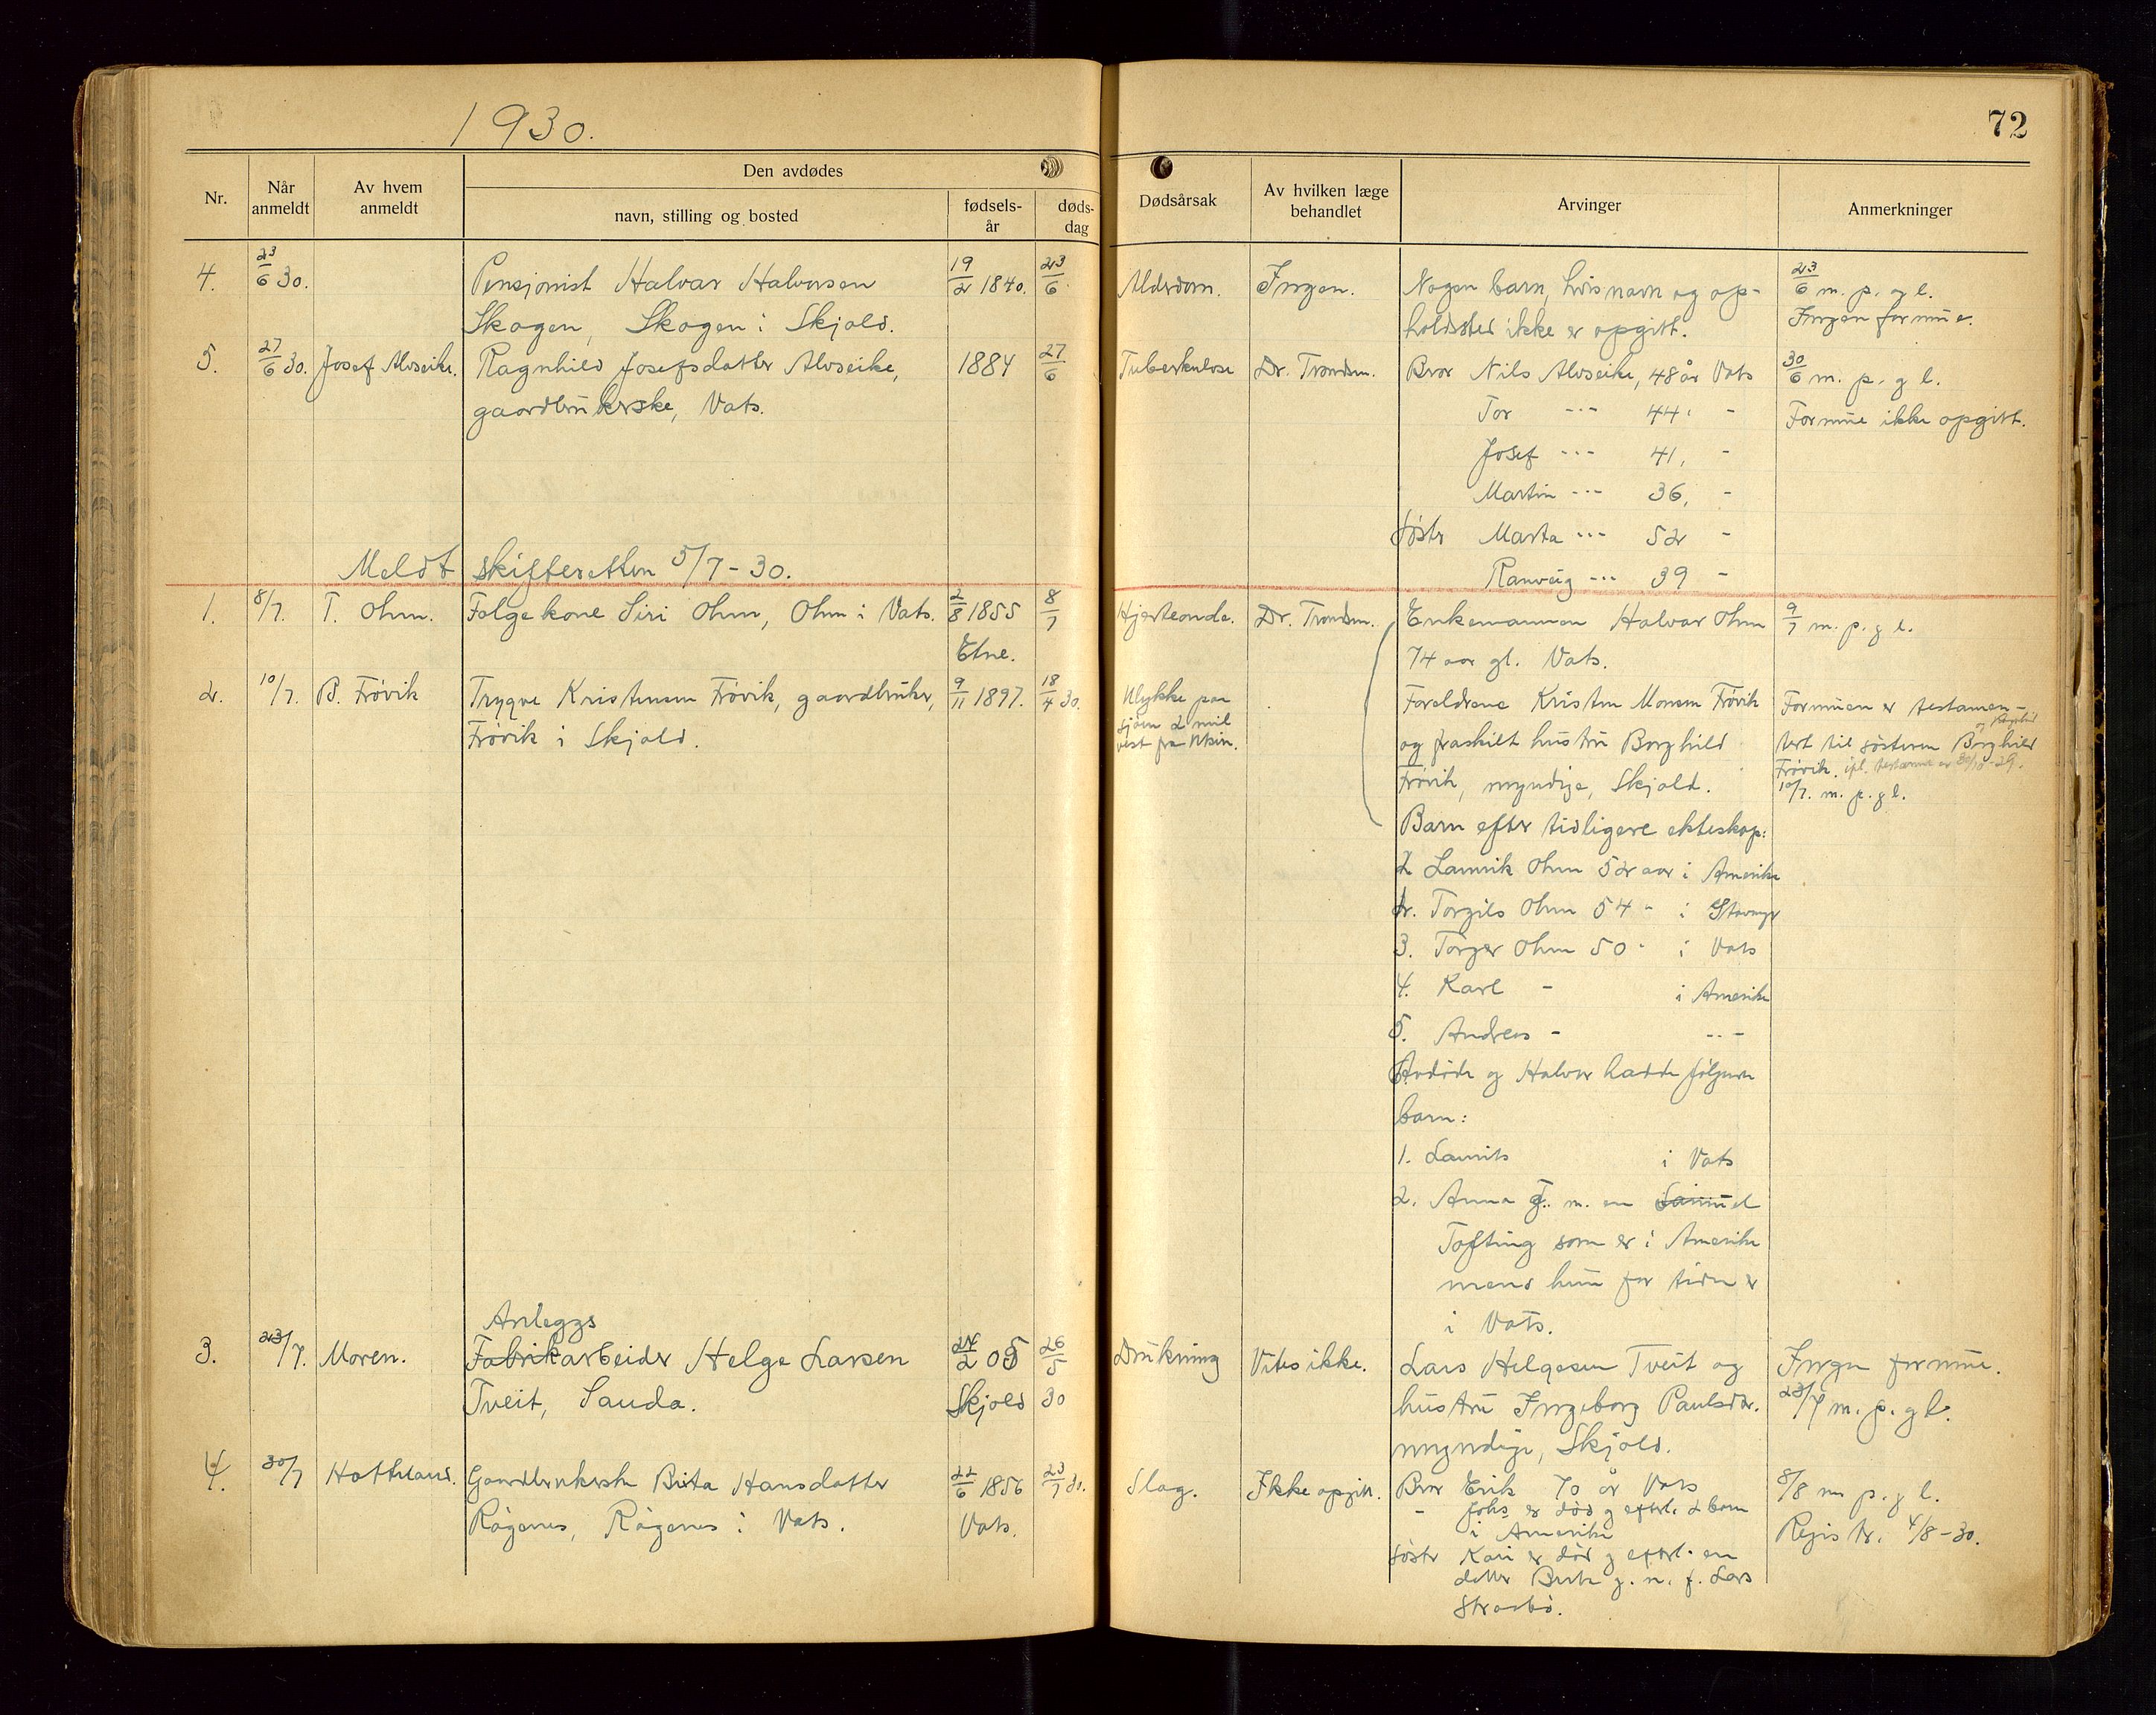 1930.
72
Nr.
Når anmeldt
Av hvem anmeldt
Den avdødes
navn, stilling og bosted
fødsels-år
døds-dag
Dødsårsak
Av hvilken læge behandlet
Arvinger
Anmerkninger
4. 23/6 30. Pensjonist Halvar Halvorsen 19/2 1840. 23/6 Alderdom. Ingen. Nogen barn, hvis navn og op- 23/6 m. p. og l.
Skogen, Skogen i Skjold. holdssted ikke er opgitt. Ingen formue.
5. 27/6 30. Josef Alvseike. Ragnhild Josefsdatter Alvseike, 1884 27/6 Tuberkulose Dr. Trondsen. Bror Nils Alvseike, 48 år Vats 30/6 m. p. g l.
gaardbrukerske, Vats. Tor --- 44 - Formue ikke opgitt.
Josef --- 41, -
Martin --- 36, -
Søster Marta --- 52 -
Meldt skifteretten 5/7-30.
Ranveig --- 39 -
1. 8/7. T. Ohm. Følgekone Siri Ohm, Ohm i Vats. 2/8 1855 8/7 Hjerteonde. Dr. Trondsen. Enkemannen Halvar Ohm 9/7 m. p. g l.
Etne. 74 aar gl. Vats.
2. 10/7. B. Frövik Trygve Kristensen Frövik, gaardbruker, 9/11 1897. 18/4 30. Ulykke paa Foreldrene Kristen Monsen Frövik Formuen er testamen-
Frövik i Skjold. sjöen 2 mil og fraskilt hustru Borghild tert til søsteren Borghild
vest fra Utsire. Frövik, myndige, Skjold. Frövik. ifl. testamente av
10/7. m. p. g l.
Barn efter tidligere ekteskap:
Laurik Ohm 52 aar i Amerika
Torgils Ohm 54 - i Stavanger
3. Torger Ohm 50 - i Vats
4. Karl - i Amerika
5. Andreas - ---
Avdöde og Halvar hadde fölgende
barn:
1. Laurits i Vats
2. Anna g. m. en Samuel
Tofting som er i Amerika
mens hun for tiden er
i Vats.
Anleggs
3. 23/7. Moren. Fabrikarbeider Helge Larsen 24/2 05 26/5 Drukning Vites ikke. Lars Helgesen Tveit og Ingen formue.
Tveit, Sauda. Skjold 30 hustru Ingeborg Paulsdtr. 23/7 m. p. g l.
myndige, Skjold.
4. 30/7 Hatteland. Gaardbrukerske Berta Hansdatter 22/6 1856 23/7 30. Slag. Ikke opgitt. Bror Erik 70 år Vats 8/8 m p. g l.
Rågenes, Rågenes i Vats. Vats. - Johs er död g efterl. 2 barn
i Amerika Regis tr. 4/8-30.
söster Kari er död g efterl. en
datter Berta g. m. f. Lars